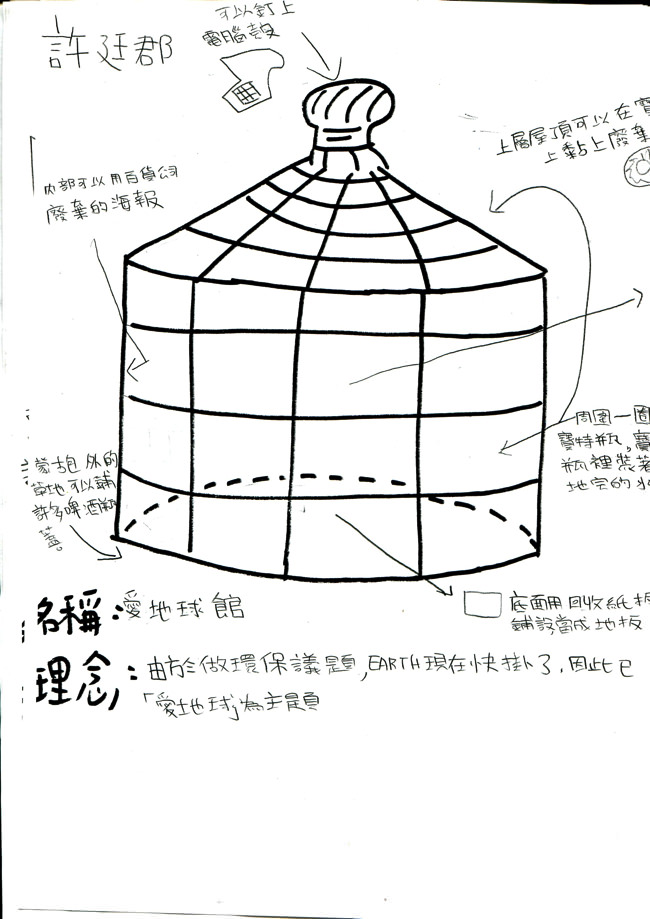 許廷郡
可以釘上
電腦壳
上層屋頂可以在寶
上黏上廢棄
內部可以用百貨公司
廢棄的海報
周圍一圈
寶特瓶,寶
瓶裡裝著
地宮的水
蒙古包外的
草地可以鋪
許多啤酒瓶
蓋。
底面用回收紙板
鋪設當成地板
名稱:愛地球館
理念:由於做環保議題,EARTH現在快掛了,因此已
「愛地球」為主題